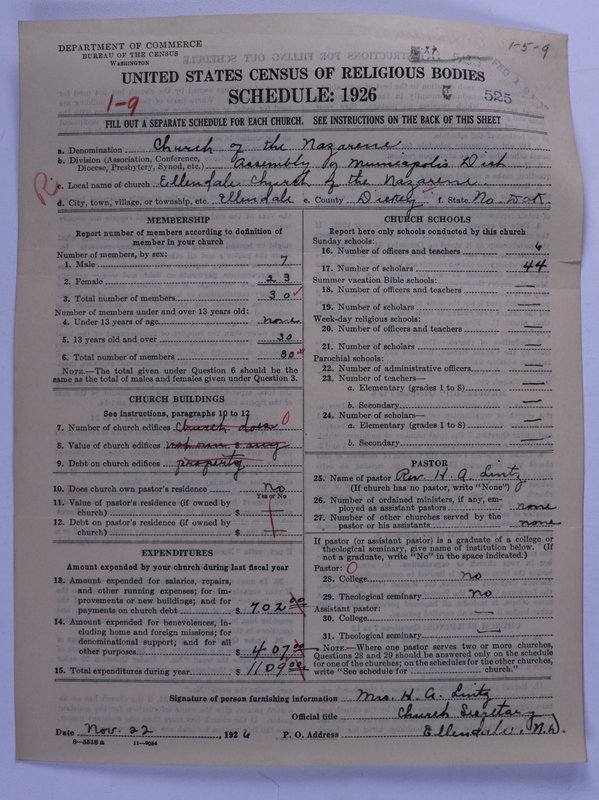 DEPARTMENT OF COMMERCE
BUREAU OF THE CENSUS
WASHINGTON
1-5-9
UNITED STATES CENSUS OF RELIGIOUS BODIES
SCHEDULE: 1926
1-9
525
FILL OUT A SEPARATE SCHEDULE FOR EACH CHURCH. SEE INSTRUCTIONS ON THE BACK OF THIS SHEET
a. Denomination Church of the Nazarene
b. Division (Association, Conference, Diocese, Presbytery, Synod, etc.) Assembly of Minneapolis Dist
c. Local name of church Ellendale Church of the Nazarene
d. City, town, village, or township, etc. Ellendale e. County Dickey f. State No. Dak.
MEMBERSHIP
Report number of members according to definition of member in your church
Number of members, by sex:
1. Male 7
2. Female 23
3. Total number of members 30
Number of members under and over 13 years old:
4. Under 13 years of age none
5. 13 years old and over 30
6. Total number of members 30
NOTE.—The total given under Question 6 should be the same as the total of males and females given under Question 3.
CHURCH BUILDINGS
See instructions, paragraphs 10 to 12
7. Number of church edifices church does 0
8. Value of church edifices not own $ any
9. Debt on church edifices property
10. Does church own pastor's residence No
Yes or No
11. Value of pastor's residence (if owned by church) $ —
12. Debt on pastor's residence (if owned by church) $ —
EXPENDITURES
Amount expended by your church during last fiscal year
13. Amount expended for salaries, repairs, and other running expenses; for improvements or new buildings; and for payments on church debt $ 702 00
14. Amount expended for benevolences, including home and foreign missions; for denominational support; and for all other purposes $ 407 00
15. Total expenditures during year $ 1109 00
CHURCH SCHOOLS
Report here only schools conducted by this church
Sunday schools:
16. Number of officers and teachers 6
17. Number of scholars 44
Summer vacation Bible schools:
18. Number of officers and teachers —
19. Number of scholars —
Week-day religious schools:
20. Number of officers and teachers —
21. Number of scholars —
Parochial schools:
22. Number of administrative officers —
23. Number of teachers—
a. Elementary (grades 1 to 8) —
b. Secondary —
24. Number of scholars—
a. Elementary (grades 1 to 8) —
b. Secondary —
PASTOR
25. Name of pastor Rev. H. A. Lintz
(If church has no pastor, write "None")
26. Number of ordained ministers, if any, employed as assistant pastors none
27. Number of other churches served by the pastor or his assistants none
If pastor (or assistant pastor) is a graduate of a college or theological seminary, give name of institution below. (If not a graduate, write "No" in the space indicated.)
Pastor: 0
28. College no
29. Theological seminary No
Assistant pastor:
30. College —
31. Theological seminary —
NOTE.—Where one pastor serves two or more churches, Questions 28 and 29 should be answered only on the schedule for one of the churches; on the schedules for the other churches, write "See schedule for church."
Signature of person furnishing information Mrs. H. A. Lintz
Official title Church Secretary
Date Nov. 22, 1926 P. O. Address Ellendale, N.D.
8-5518a 11-9054